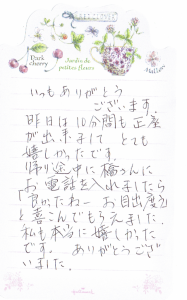 Dark
cherry
Jardin de
petites fleurs
Mallow
いつもありがとう
ございます。
昨日は10分間も正座
が出来まして とても
嬉しかったです。
帰り途中に橋さんに
お電話を入れましたら
「良かったねー お目出度う」
と喜んでもらえました。
私も本当に嬉しかった
です。 ありがとうござ
いました。